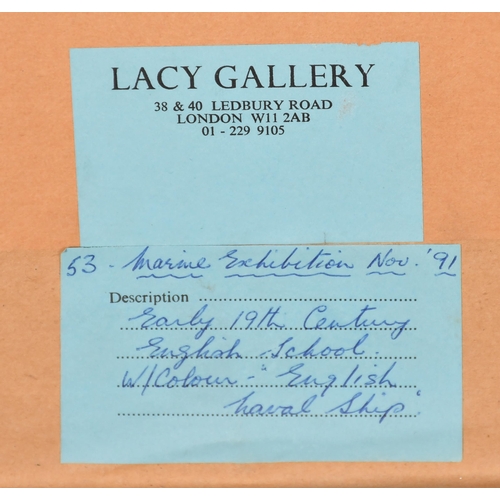 LACY GALLERY
38 & 40 LEDBURY ROAD
LONDON W11 2AB
01 - 229 9105
53 - Marine Exhibition Nov. '91
Description
Early 19th Century
English School.
W/Colour - "English
Naval Ship"